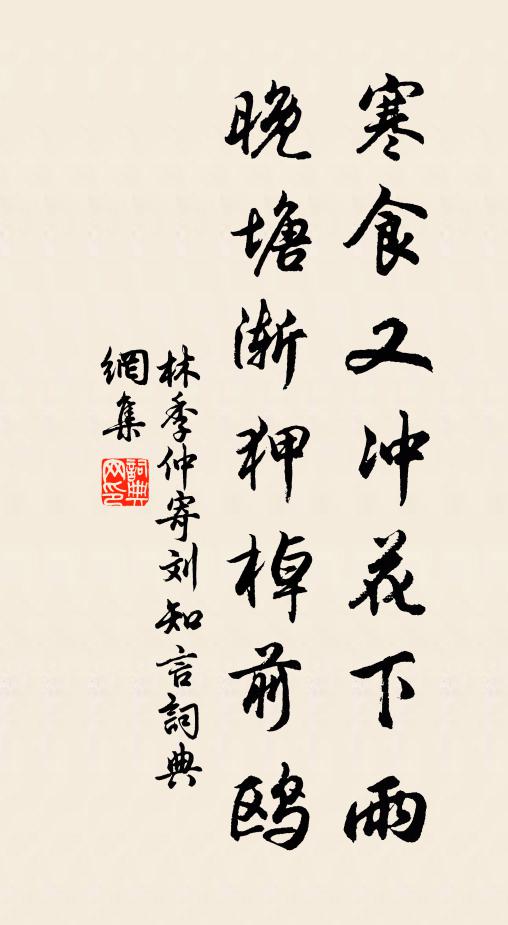 寒食又冲花下雨
晚塘渐狎棹前鸥
林季仲寄刘知言詞典
網集
詞典网印